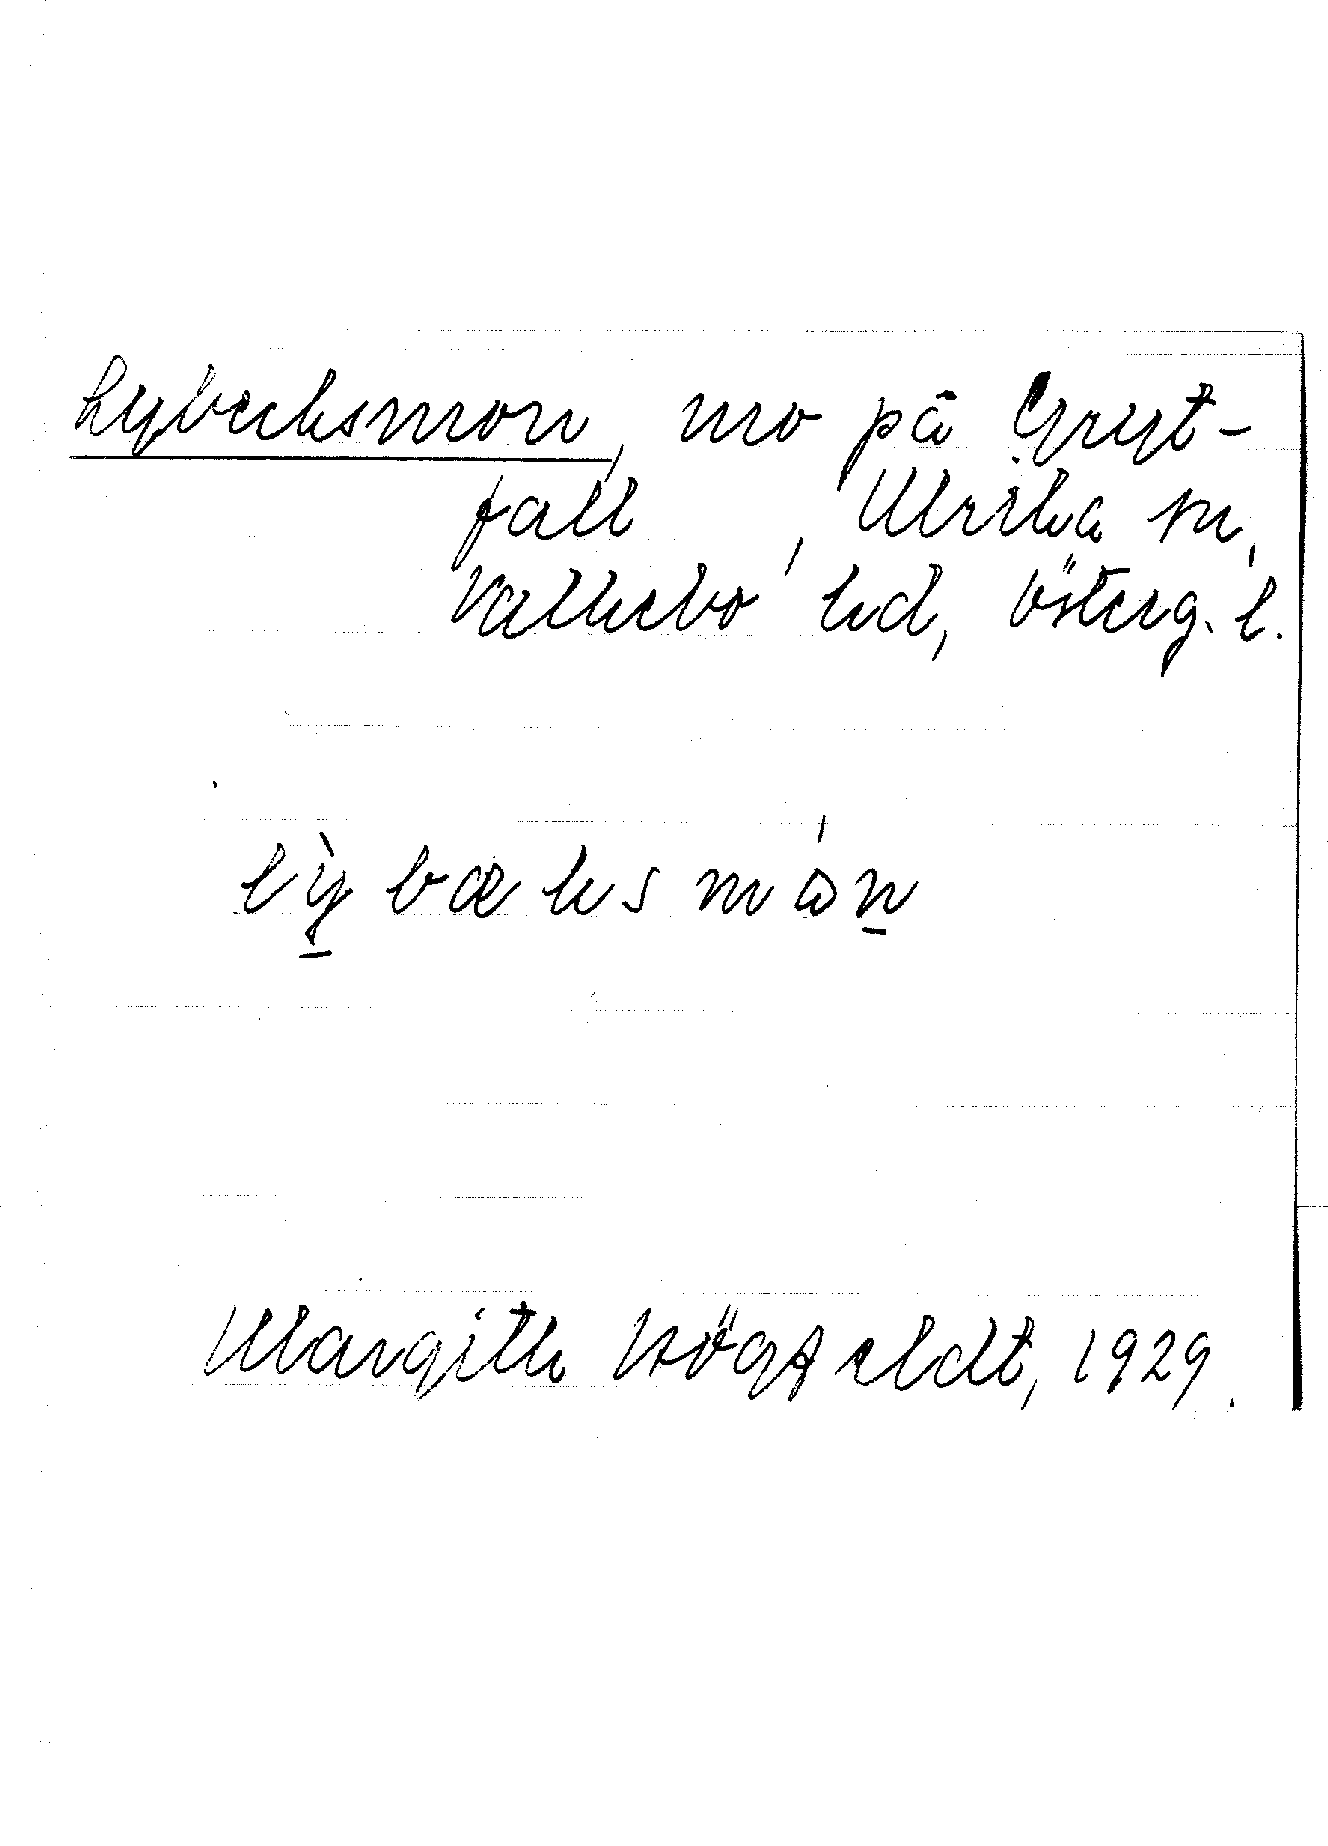 Lybecksmon, mo på Gryt-
fall, Ulrika sn,
Valkebo hd, Österg. l.
lỳbæksmón
Margith Högfeldt, 1929.